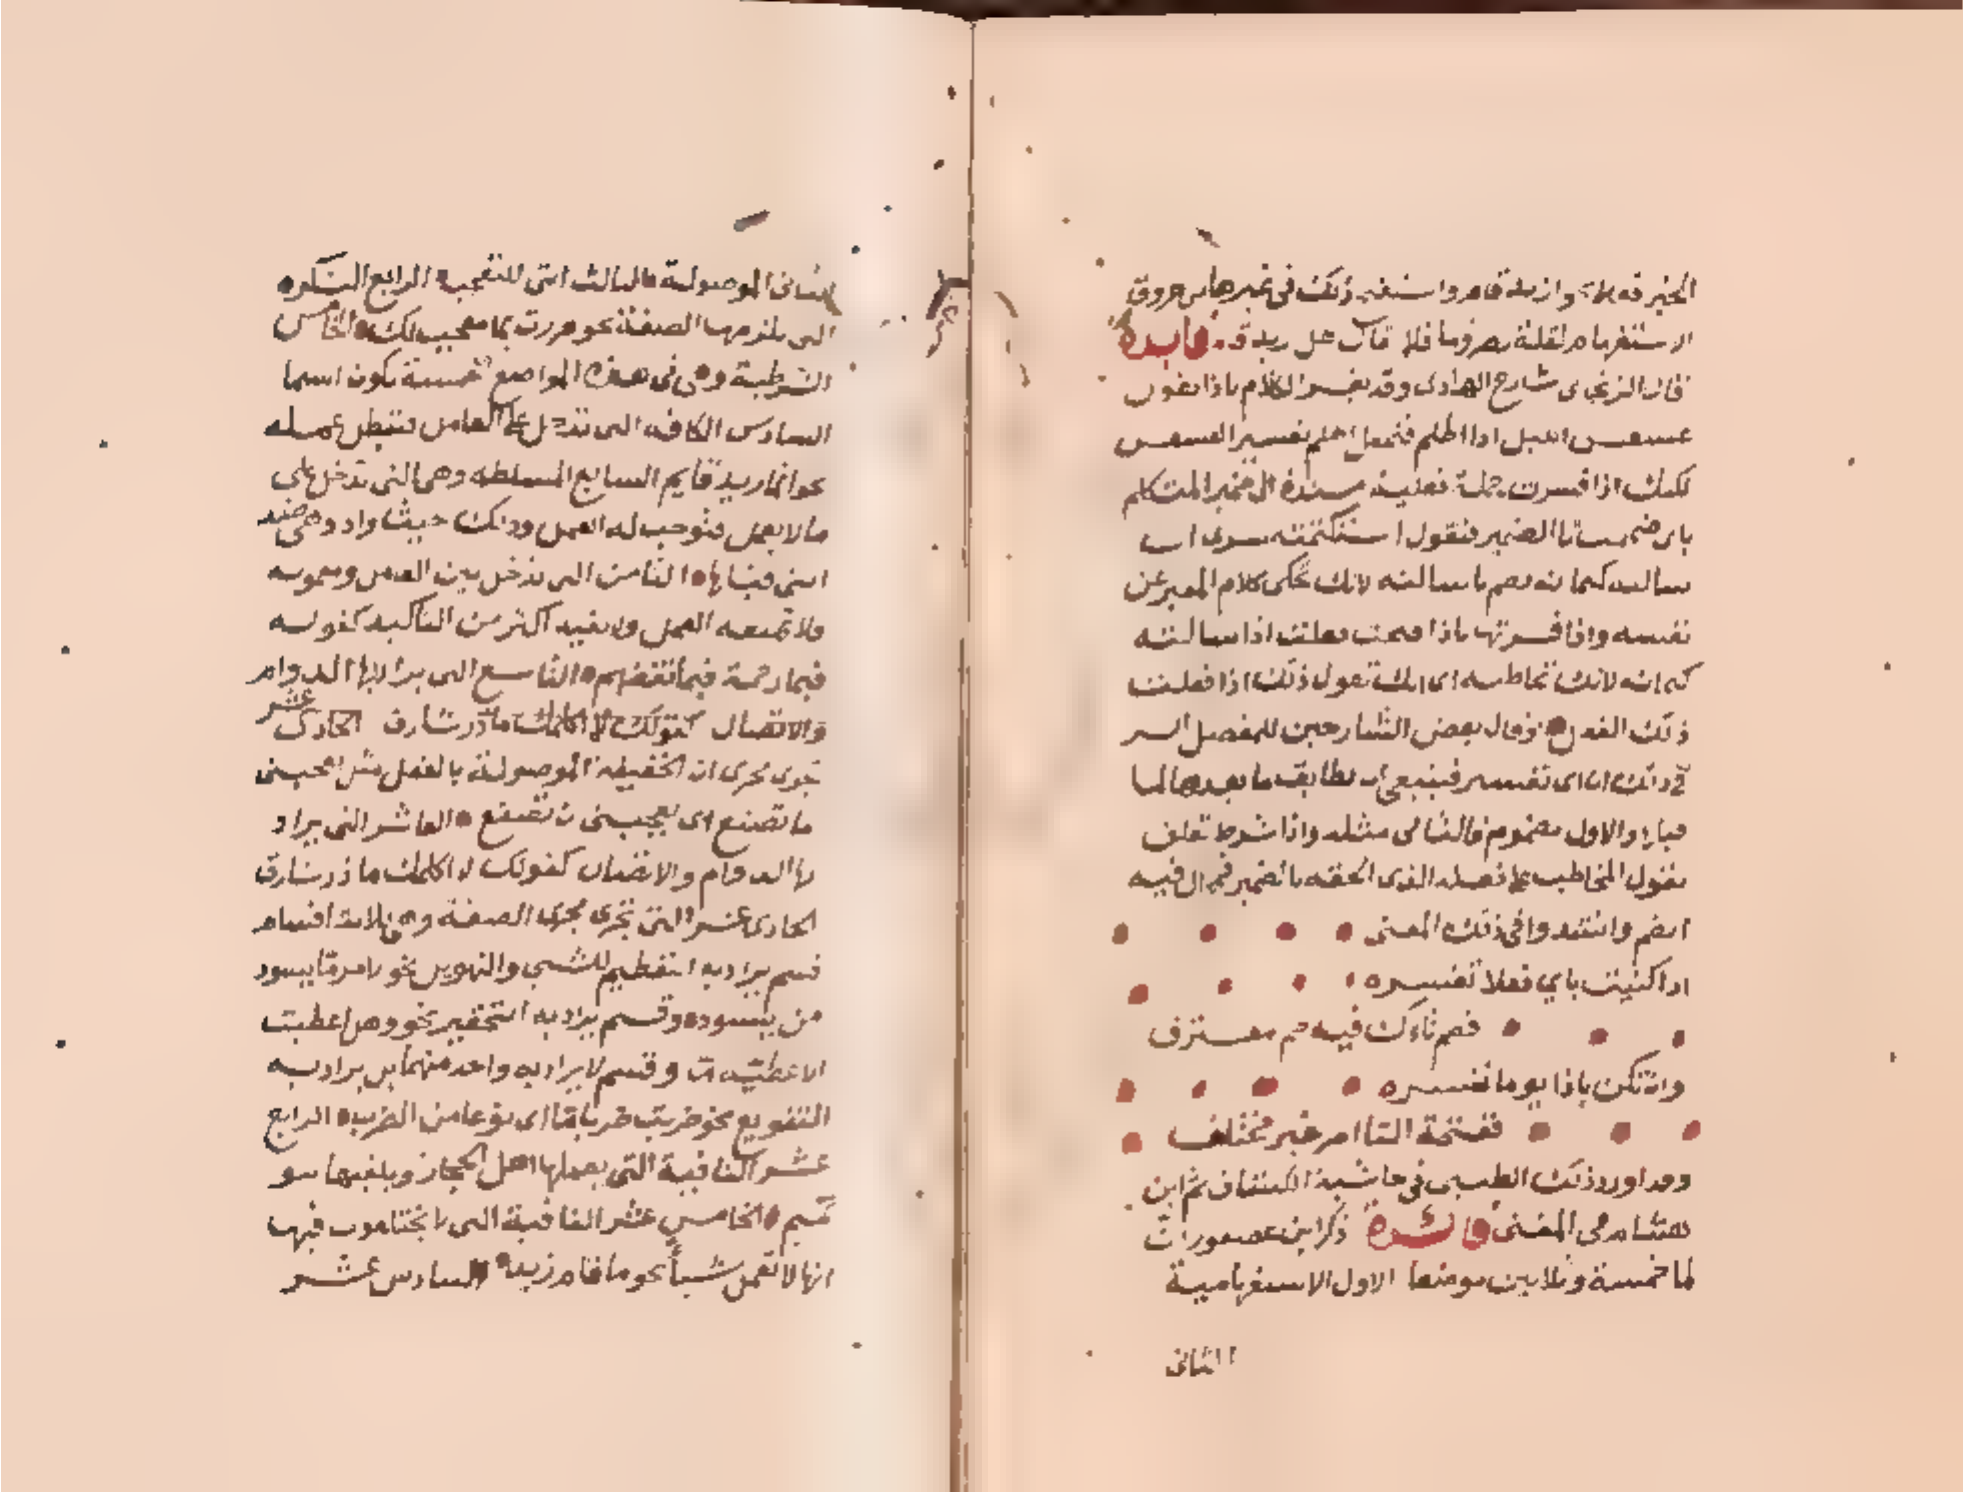 الاستفهام لقلة تصرفها فلا يقال هل زيد قام فايدة
قال الزنجاني شارح الهادي وقد يفسر الكلام باذا تقول
عسعس الليل اذا اظلم فتجعل اظلم تفسيرا لعسعس
لكنك اذا فسرت جملة فعلية مسندة الى ضمير المتكلم
باي ضممت تا الضمير فتقول استكتمته سري اي
سالته كتمانه بضم تا سالته لانك تحكي كلام المعبر عن
نفسه واذا فسرتها باذا فتحت فقلت اذا سالته
كتمانه لانك تخاطبه اي انك تقول ذلك اذا فعلت
ذلك الفعل وقال بعض الشارحين للمفصل السر
في ذلك ان اي تفسير فينبغي ان يطابق ما بعدها لما
قبلها والاول مضموم فالثاني مثله واذا شرط تعلق
بقول المخاطب على فعله الذي الحقه بالضمير فمحال فيه
الضم وانشدوا في ذلك المعنى
اذا كنيت باي فعلا تفسره
فضم تاءك فيه ضم معترف
وان تكن باذا يوما تفسره
ففتحة التا امر غير مختلف
وقد اورد ذلك الطيبي في حاشية الكشاف ثم ابن
هشام في المغنى فائدة ذكر ابن عصفور ان
لما خمسة وثلاثين موضعا الاول الاستفهامية
الثاني
الثاني الموصولة الثالث التي للتعجب الرابع النكرة
التي يلزمها الصفة نحو مررت بما معجب لك الخامس
الشرطية وهي في هذه المواضع الخمسة تكون اسما
السادس الكافة التي تدخل على العامل فتبطل عمله
نحو انما زيد قايم السابع المسلطة وهي التي تدخل على
ما لا يعمل فتوجب له العمل وذلك حيث واذ وهي ضد
التي قبلها الثامن التي تدخل بين العامل ومعموله
ولا تمنعه العمل ولا تفيد اكثر من التاكيد كقوله
فبما رحمة فبما نقضهم التاسع التي يراد بها الدوام
والاتصال كقولك لا اكلمك ما ذر شارق الحادي عشر
تجري مجرى ان الخفيفة الموصولة بالفعل مثل يعجبني
ما تصنع اي يعجبني ان تصنع العاشر التي يراد
بها الدوام والاتصال كقولك لا اكلمك ما ذر شارق
الحادي عشر التي تجري مجرى الصفة وهي ثلاثة اقسام
قسم يراد به التعظيم للشي والتهويل نحو لامر ما يسود
من يسود وقسم يراد به التحقير نحو وهل اعطيت
الا عطية ما وقسم لا يراد به واحد منهما بل يراد به
التنويع نحو ضربت ضربا ما اي نوعا من الضرب الرابع
عشر النافية التي يعملها اهل الحجاز ويلغيها بنو
تميم الخامس عشر النافية التي لا يختلفون فيها
انها لا تعمل شيأ نحو ما قام زيد السادس عشر